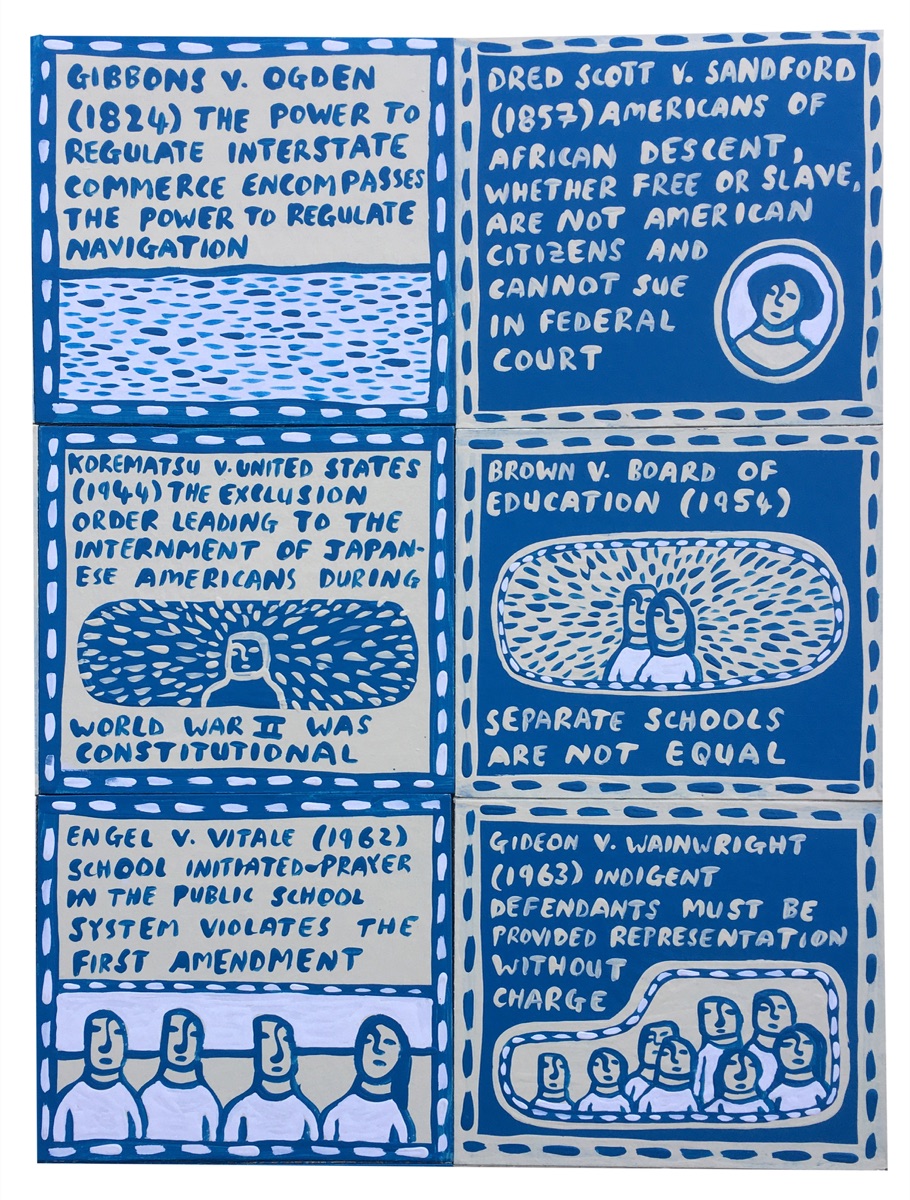 GIBBONS V. OGDEN
(1824) THE POWER TO
REGULATE INTERSTATE
COMMERCE ENCOMPASSES
THE POWER TO REGULATE
NAVIGATION
DRED SCOTT V. SANDFORD
(1857) AMERICANS OF
AFRICAN DESCENT,
WHETHER FREE OR SLAVE,
ARE NOT AMERICAN
CITIZENS AND
CANNOT SUE
IN FEDERAL
COURT
KOREMATSU V. UNITED STATES
(1944) THE EXCLUSION
ORDER LEADING TO THE
INTERNMENT OF JAPAN-
ESE AMERICANS DURING
WORLD WAR II WAS
CONSTITUTIONAL
BROWN V. BOARD OF
EDUCATION (1954)
SEPARATE SCHOOLS
ARE NOT EQUAL
ENGEL V. VITALE (1962)
SCHOOL INITIATED-PRAYER
IN THE PUBLIC SCHOOL
SYSTEM VIOLATES THE
FIRST AMENDMENT
GIDEON V. WAINWRIGHT
(1963) INDIGENT
DEFENDANTS MUST BE
PROVIDED REPRESENTATION
WITHOUT
CHARGE